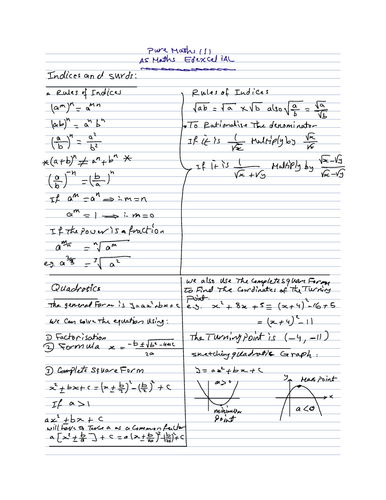 Pure Maths (1)
AS Maths Edexcel IAL
Indices and surds:
Rules of Indices
(a^m)^n = a^mn
(ab)^n = a^n b^n
(a/b)^n = a^2/b^2
*(a+b)^n ≠ a^n + b^n *
(a/b)^-n = (b/a)^n
If a^m = a^n → ∴ m = n
a^m = 1 → ∴ m = 0
If the power is a fraction
a^m/n = n√a^m
Rules of Indices
√ab = √a × √b also √a/b = √a/√b
To Rationalise the denominator
If it is 1/√x Multiply by √x/√x
If it is 1/√x+√y Multiply by √x-√y/√x-√y
Quadratics
The general Form is y=ax²+bx+c
We can solve the equation using:
① Factorisation
② Formula x = -b±√b²-4ac/2a
Complete Square Form
x² + bx + c = (x + b/2)² - (b/2)² + c
If a > 1
ax² + bx + c
will have to take a as a common factor
We also use the Complete Square Form
to Find the Coordinates of the Turning
Point
e.g. x² + 8x + 5 = (x+4)² - 16 + 5
= (x+4)² - 11
The Turning Point is (-4, -11)
sketching quadratic Graph:
y = ax² + bx + c
a>0
minimum
Point
y
Max Point
x
a<0